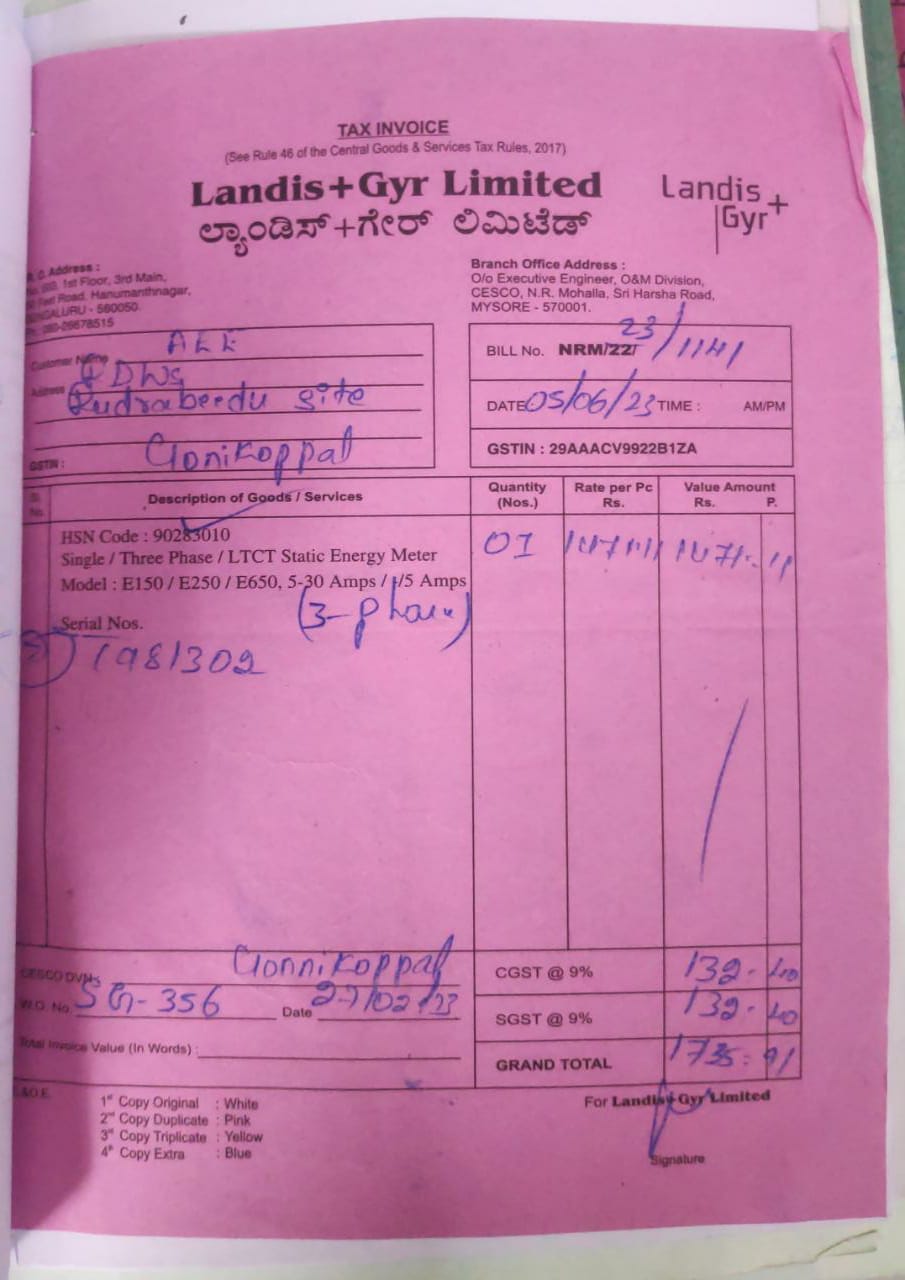 TAX INVOICE
(See Rule 46 of the Central Goods & Services Tax Rules, 2017)
Landis+Gyr Limited
ಲ್ಯಾಂಡಿಸ್+ಗೇರ್ ಲಿಮಿಟೆಡ್
Landis
Gyr+
Address :
1st Floor, 3rd Main,
Road, Hanumanthnagar,
560050.
26678515
Branch Office Address :
O/o Executive Engineer, O&M Division,
CESCO, N.R. Mohalla, Sri Harsha Road,
MYSORE - 570001.
Customer Name AEE
Address RDWS
Rudrabeedu site
GSTIN : Gonikoppal
BILL No. NRM/22/ 23/1141
DATE 05/06/23 TIME : AM/PM
GSTIN : 29AAACV9922B1ZA
Sl. No. Description of Goods / Services Quantity (Nos.) Rate per Pc Rs. Value Amount Rs. P.
HSN Code : 90283010
Single / Three Phase / LTCT Static Energy Meter 01 1471.11 1471-11
Model : E150 / E250 / E650, 5-30 Amps / -/5 Amps
(3-phase)
Serial Nos.
7981302
CESCO DVN. Gonnikoppal
W.O. No. SG-356 Date 27/02/23
Total Invoice Value (In Words) :
CGST @ 9% 132-40
SGST @ 9% 132-40
GRAND TOTAL 1735-91
E.&O.E.
1st Copy Original : White
2nd Copy Duplicate : Pink
3rd Copy Triplicate : Yellow
4th Copy Extra : Blue
For Landis+Gyr Limited
Signature